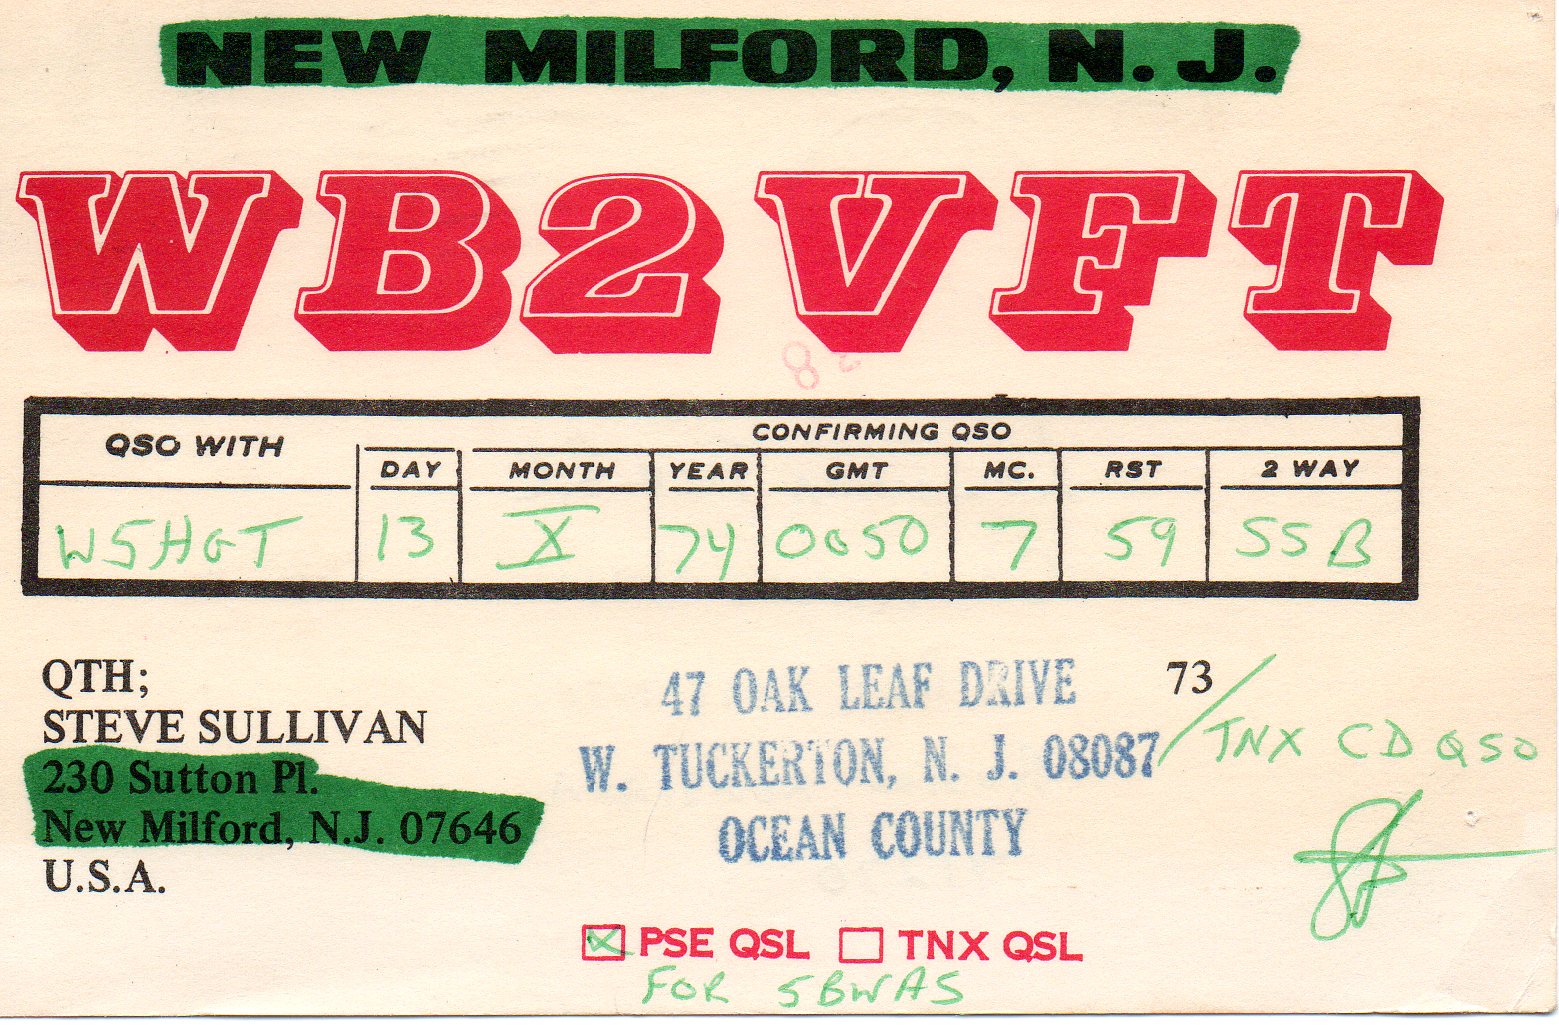 NEW MILFORD, N. J.
WB2VFT
QSO WITH
CONFIRMING QSO
DAY MONTH YEAR GMT MC. RST 2 WAY
W5HGT 13 X 74 0050 7 59 SSB
QTH;
STEVE SULLIVAN
230 Sutton Pl.
New Milford, N.J. 07646
U.S.A.
47 OAK LEAF DRIVE
W. TUCKERTON, N. J. 08087
OCEAN COUNTY
73
/TNX CD QSO
PSE QSL TNX QSL
FOR 5BWAS